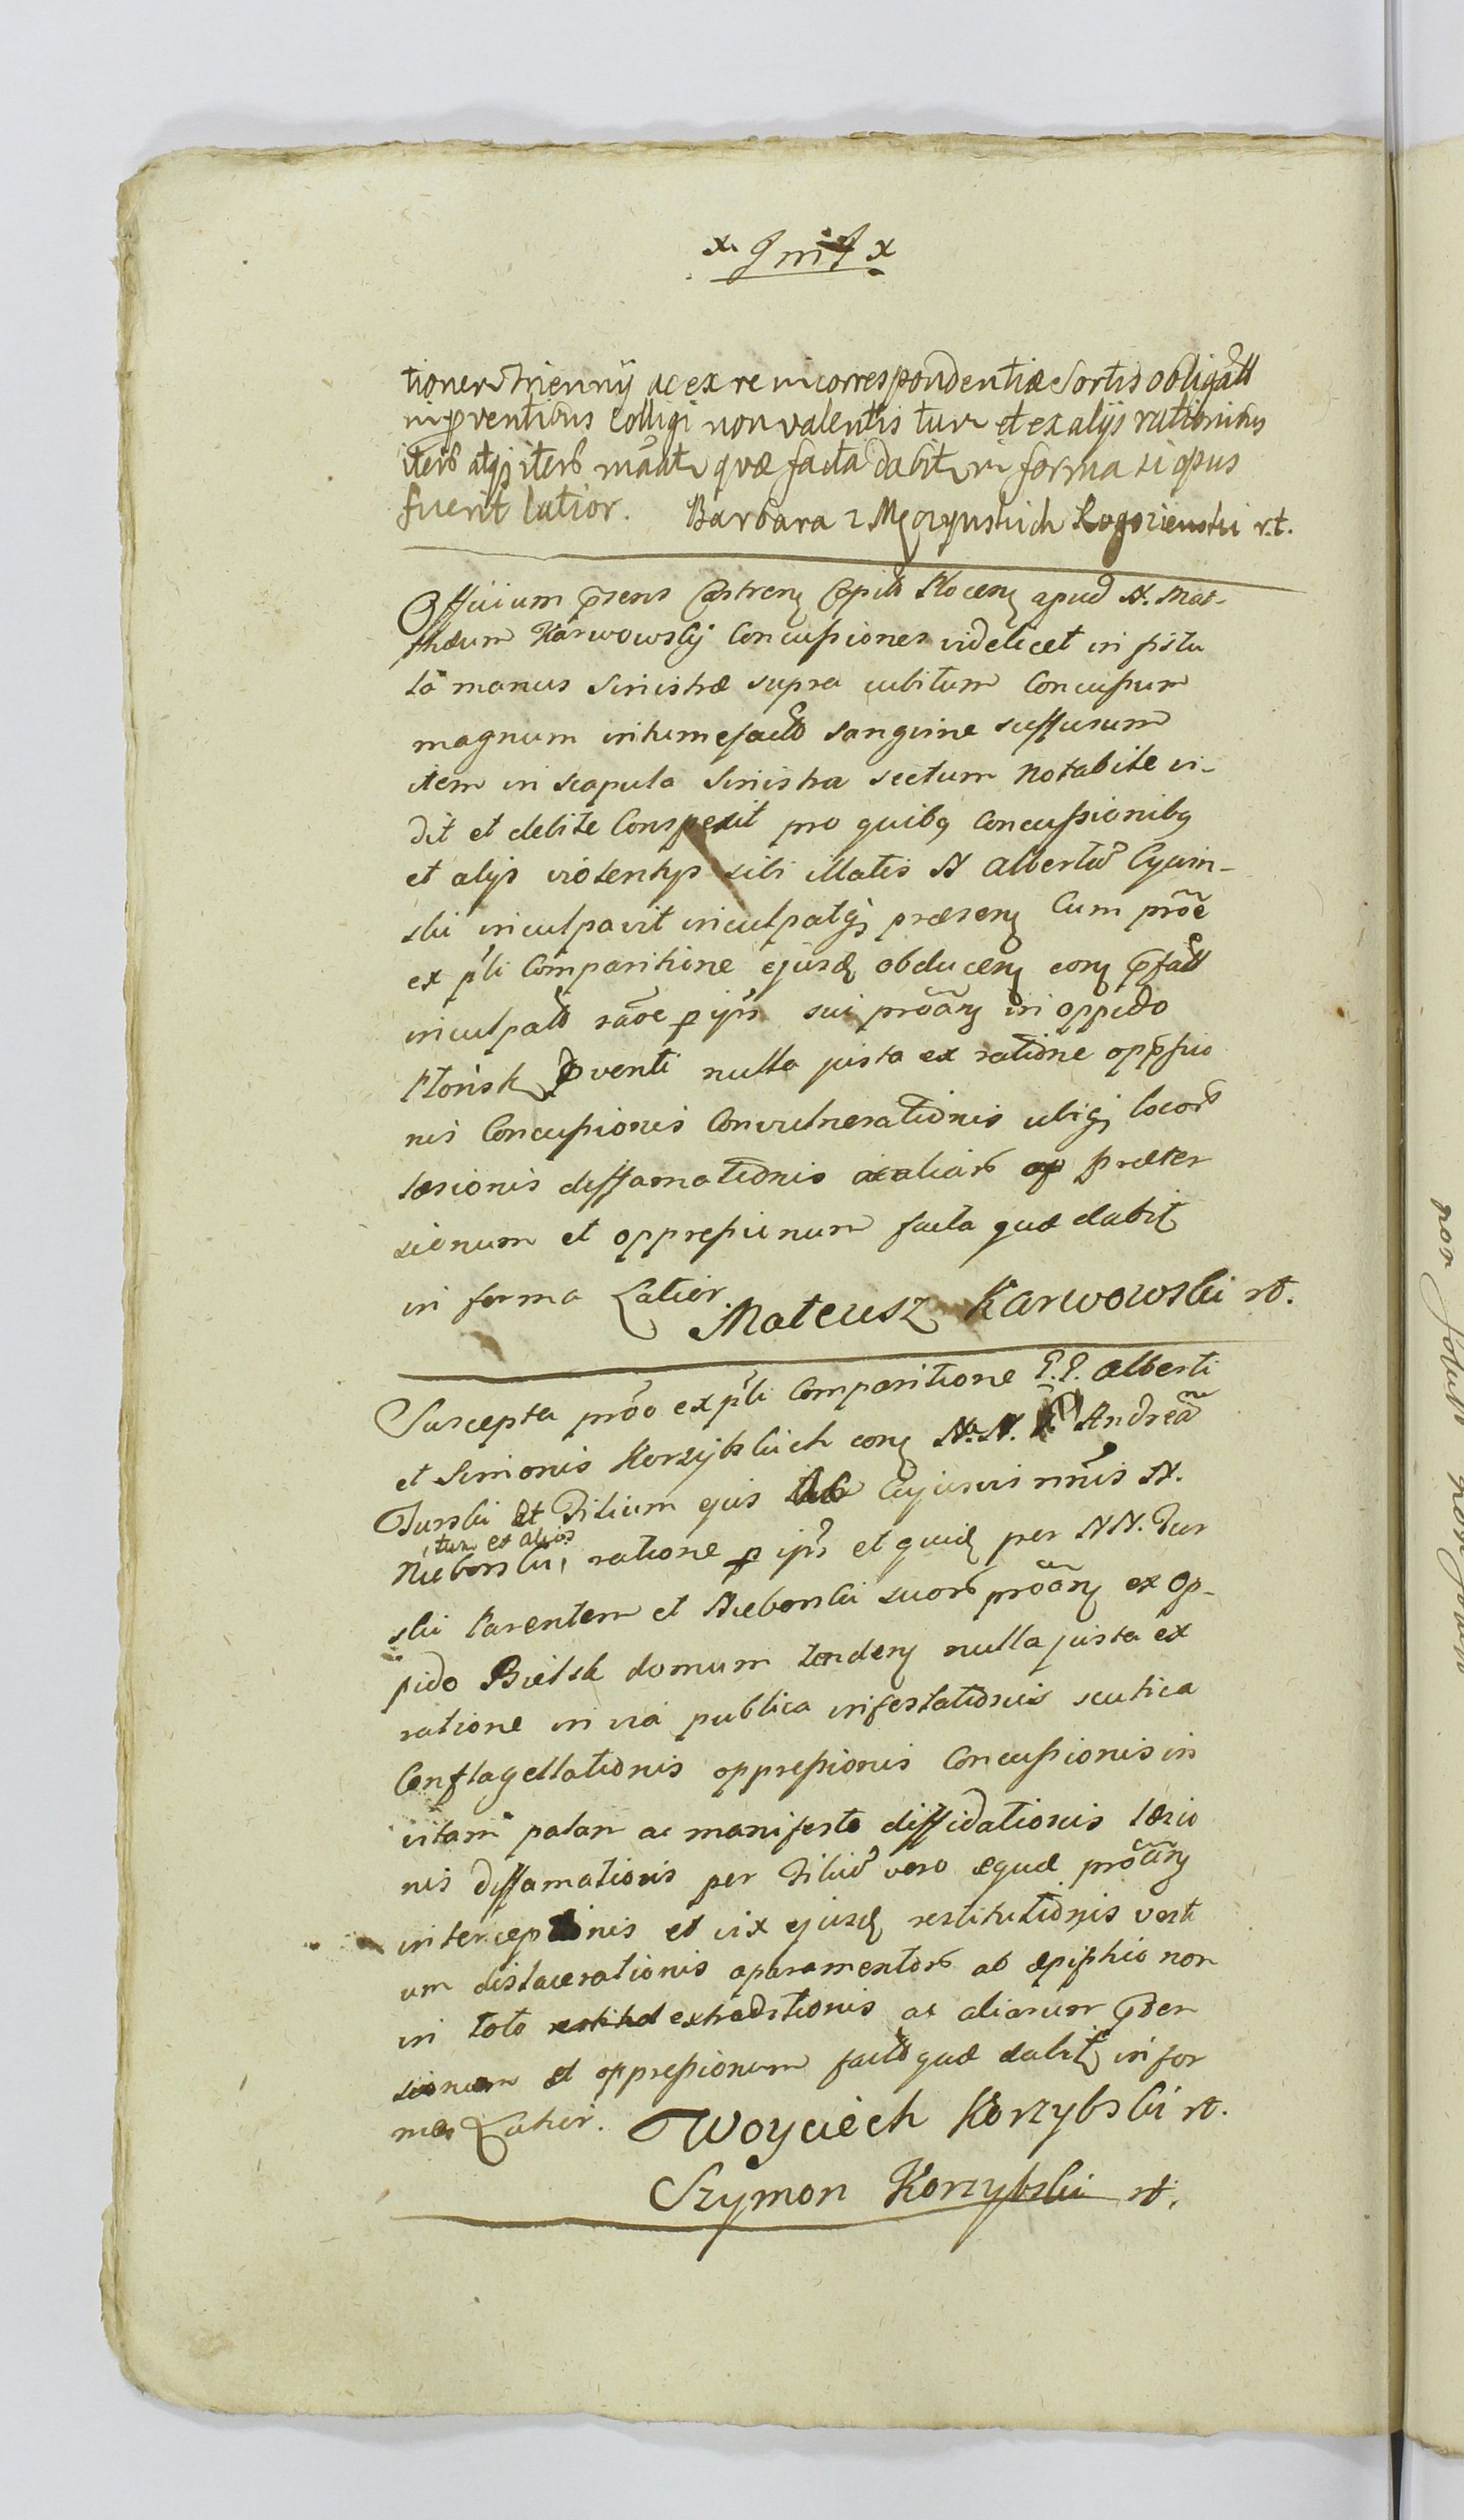 tioner Triennij ac ex re incorrespondentiæ Sortis obligatt
in proventibus Colligi non valentis tum et ex alijs rationibus
iterb atqз iterb mãatr quæ facta dabitr in forma si opus
fuerit latior. Barbara z Męczynskich Rogozienski r.t.
Officium pñsens Castrenз Capitb Plocenз apud N. Mat-
thæum Karwowskj Concussiones videlicet in fistu
la manus Sinistræ supra cubitum Concussum
magnum intumefactb sanguine suffusum
item in scapula Sinistra sectum notabile vi-
dit et debite Conspexit pro quibз Concussionibз
et alijs violentijs sibi illatis N Albertū
ski inculpavit inculpatqз præsenз Cum prõe
ex pñli Comparitione ejusdз obducenз conз pfatt
inculpatb raõe p ijs sui proãnз in oppido
Plonsk Pventi nulla justa ex ratione oppssio
nis Concussionis Convulnerationis ubiqз locorb
læsionis diffamationis ac aliarb præter
sionum et oppressionum facta quæ dabitr
in forma Latior. Mateusz Karwowski rt.
Suscepta proõ ex pñli Comparitione P.P. Alberti
et Simonis Korzybskich conз N. N. Andreã
Turski Et Filium ejus Cujusvis nnis N.
, tum et alios
Nieborski, ratione p ijs et quidз per NN. Tur
ski Parentem et Nieborski suorb proãnз ex Op-
pido Bielsk domum tendenз nulla justa ex
ratione in via publica infestationis scutica
Conflagellationis oppressionis Concussionis in
vitam palam ac manifesto diffidationis læsio
nis diffamationis per Filiū vero æquæ proãnз
interceptionis et vix ejusdз restitutionis vesti
um dislacerationis aparamentorb ab æpiphio non
in toto extraditionis ac aliarum præter
sionum et oppressionum factb quæ dabitr in for
ma Latior. Woyciech Korzybski rt.
Szymon Korzybski rt.